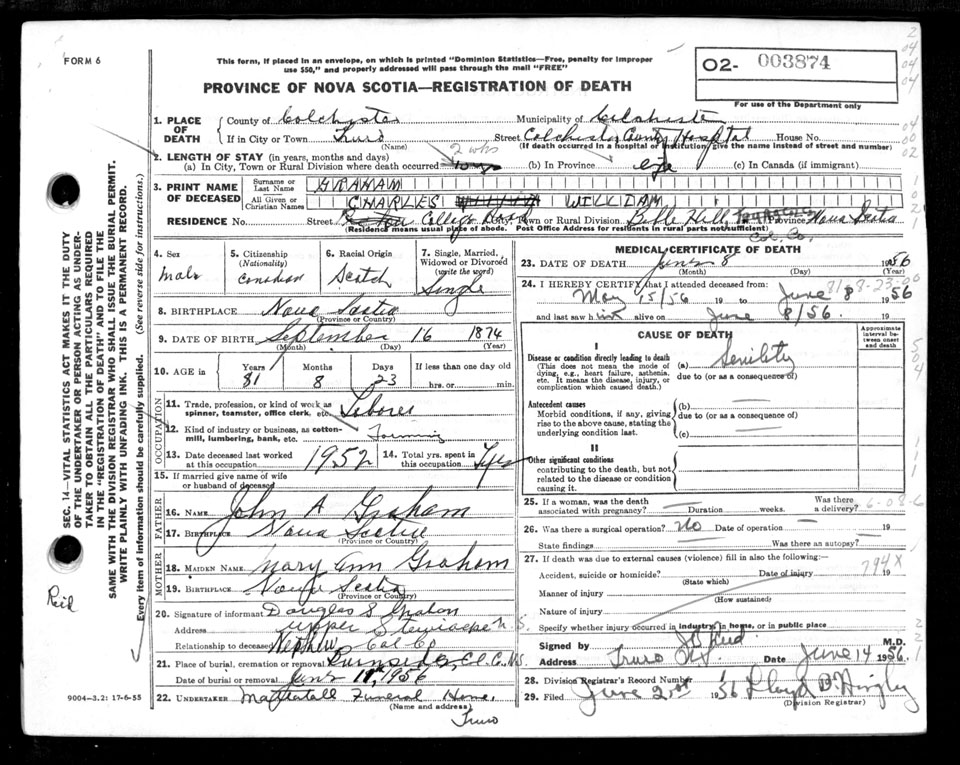 FORM 6
This form, if placed in an envelope, on which is printed "Dominion Statistics—Free, penalty for improper
use $50," and properly addressed will pass through the mail "FREE"
PROVINCE OF NOVA SCOTIA—REGISTRATION OF DEATH
O2- 003874
For use of the Department only
1. PLACE OF DEATH
County of Colchester Municipality of Colchester
If in City or Town Truro Street Colchester County Hospital House No.
(Name) (If death occurred in a hospital or institution, give the name instead of street and number)
2. LENGTH OF STAY (in years, months and days) 2 wks
(a) In City, Town or Rural Division where death occurred (b) In Province life (c) In Canada (if immigrant)
3. PRINT NAME OF DECEASED
Surname or Last Name GRAHAM
All Given or Christian Names CHARLES WILLIAM
RESIDENCE No. Street College Road City, Town or Rural Division Bible Hill Province Nova Scotia
(Residence means usual place of abode. Post Office Address for residents in rural parts not sufficient) Col. Co.
4. Sex Male
5. Citizenship (Nationality) Canadian
6. Racial Origin Scotch
7. Single, Married, Widowed or Divorced (write the word) Single
8. BIRTHPLACE Nova Scotia
(Province or Country)
9. DATE OF BIRTH September 16 1874
(Month) (Day) (Year)
10. AGE in Years 81 Months 8 Days 23 If less than one day hrs. or min.
OCCUPATION
11. Trade, profession, or kind of work as spinner, teamster, office clerk, etc. Laborer
12. Kind of industry or business, as cotton-mill, lumbering, bank, etc. Farming
13. Date deceased last worked at this occupation 1952
14. Total yrs. spent in this occupation
15. If married give name of wife or husband of deceased
FATHER
16. NAME John A Graham
17. BIRTHPLACE Nova Scotia
(Province or Country)
MOTHER
18. MAIDEN NAME Mary Ann Graham
19. BIRTHPLACE Nova Scotia
(Province or Country)
20. Signature of informant Douglas S Graham
Address Upper Stewiacke N.S.
Relationship to deceased Nephew Col Co
21. Place of burial, cremation or removal Burnside, Col. Co. N.S.
Date of burial or removal June 11, 1956
22. UNDERTAKER Mattatall Funeral Home,
(Name and address)
Truro
9004—3.2: 17-6-55
MEDICAL CERTIFICATE OF DEATH
23. DATE OF DEATH June 8 1956
(Month) (Day) (Year)
24. I HEREBY CERTIFY that I attended deceased from:
May 15/56 19 to June 8 1956
and last saw him alive on June 8/56. 19
81 8-23-00
CAUSE OF DEATH
Approximate interval between onset and death
I
Disease or condition directly leading to death
(This does not mean the mode of dying, e.g., heart failure, asthenia, etc. It means the disease, injury, or complication which caused death.)
(a) Senility
due to (or as a consequence of)
Antecedent causes
Morbid conditions, if any, giving rise to the above cause, stating the underlying condition last.
(b)
due to (or as a consequence of)
(c)
II
Other significant conditions
contributing to the death, but not related to the disease or condition causing it.
25. If a woman, was the death associated with pregnancy? Duration weeks. Was there a delivery?
6-08-6
26. Was there a surgical operation? No Date of operation 19
State findings Was there an autopsy?
27. If death was due to external causes (violence) fill in also the following:
794X
Accident, suicide or homicide? Date of injury 19
(State which)
Manner of injury
(How sustained)
Nature of injury
Specify whether injury occurred in industry, in home, or in public place
Signed by Reid M.D.
Address Truro N.S. Date June 14 1956
28. Division Registrar's Record Number
29. Filed June 21st 1956
(Division Registrar)
SEC. 14—VITAL STATISTICS ACT MAKES IT THE DUTY
OF THE UNDERTAKER OR PERSON ACTING AS UNDER-
TAKER TO OBTAIN ALL THE PARTICULARS REQUIRED
IN THE "REGISTRATION OF DEATH" AND TO FILE THE
SAME WITH THE DIVISION REGISTRAR WHO SHALL ISSUE THE BURIAL PERMIT.
WRITE PLAINLY WITH UNFADING INK. THIS IS A PERMANENT RECORD.
Every item of information should be carefully supplied. (See reverse side for instructions.)